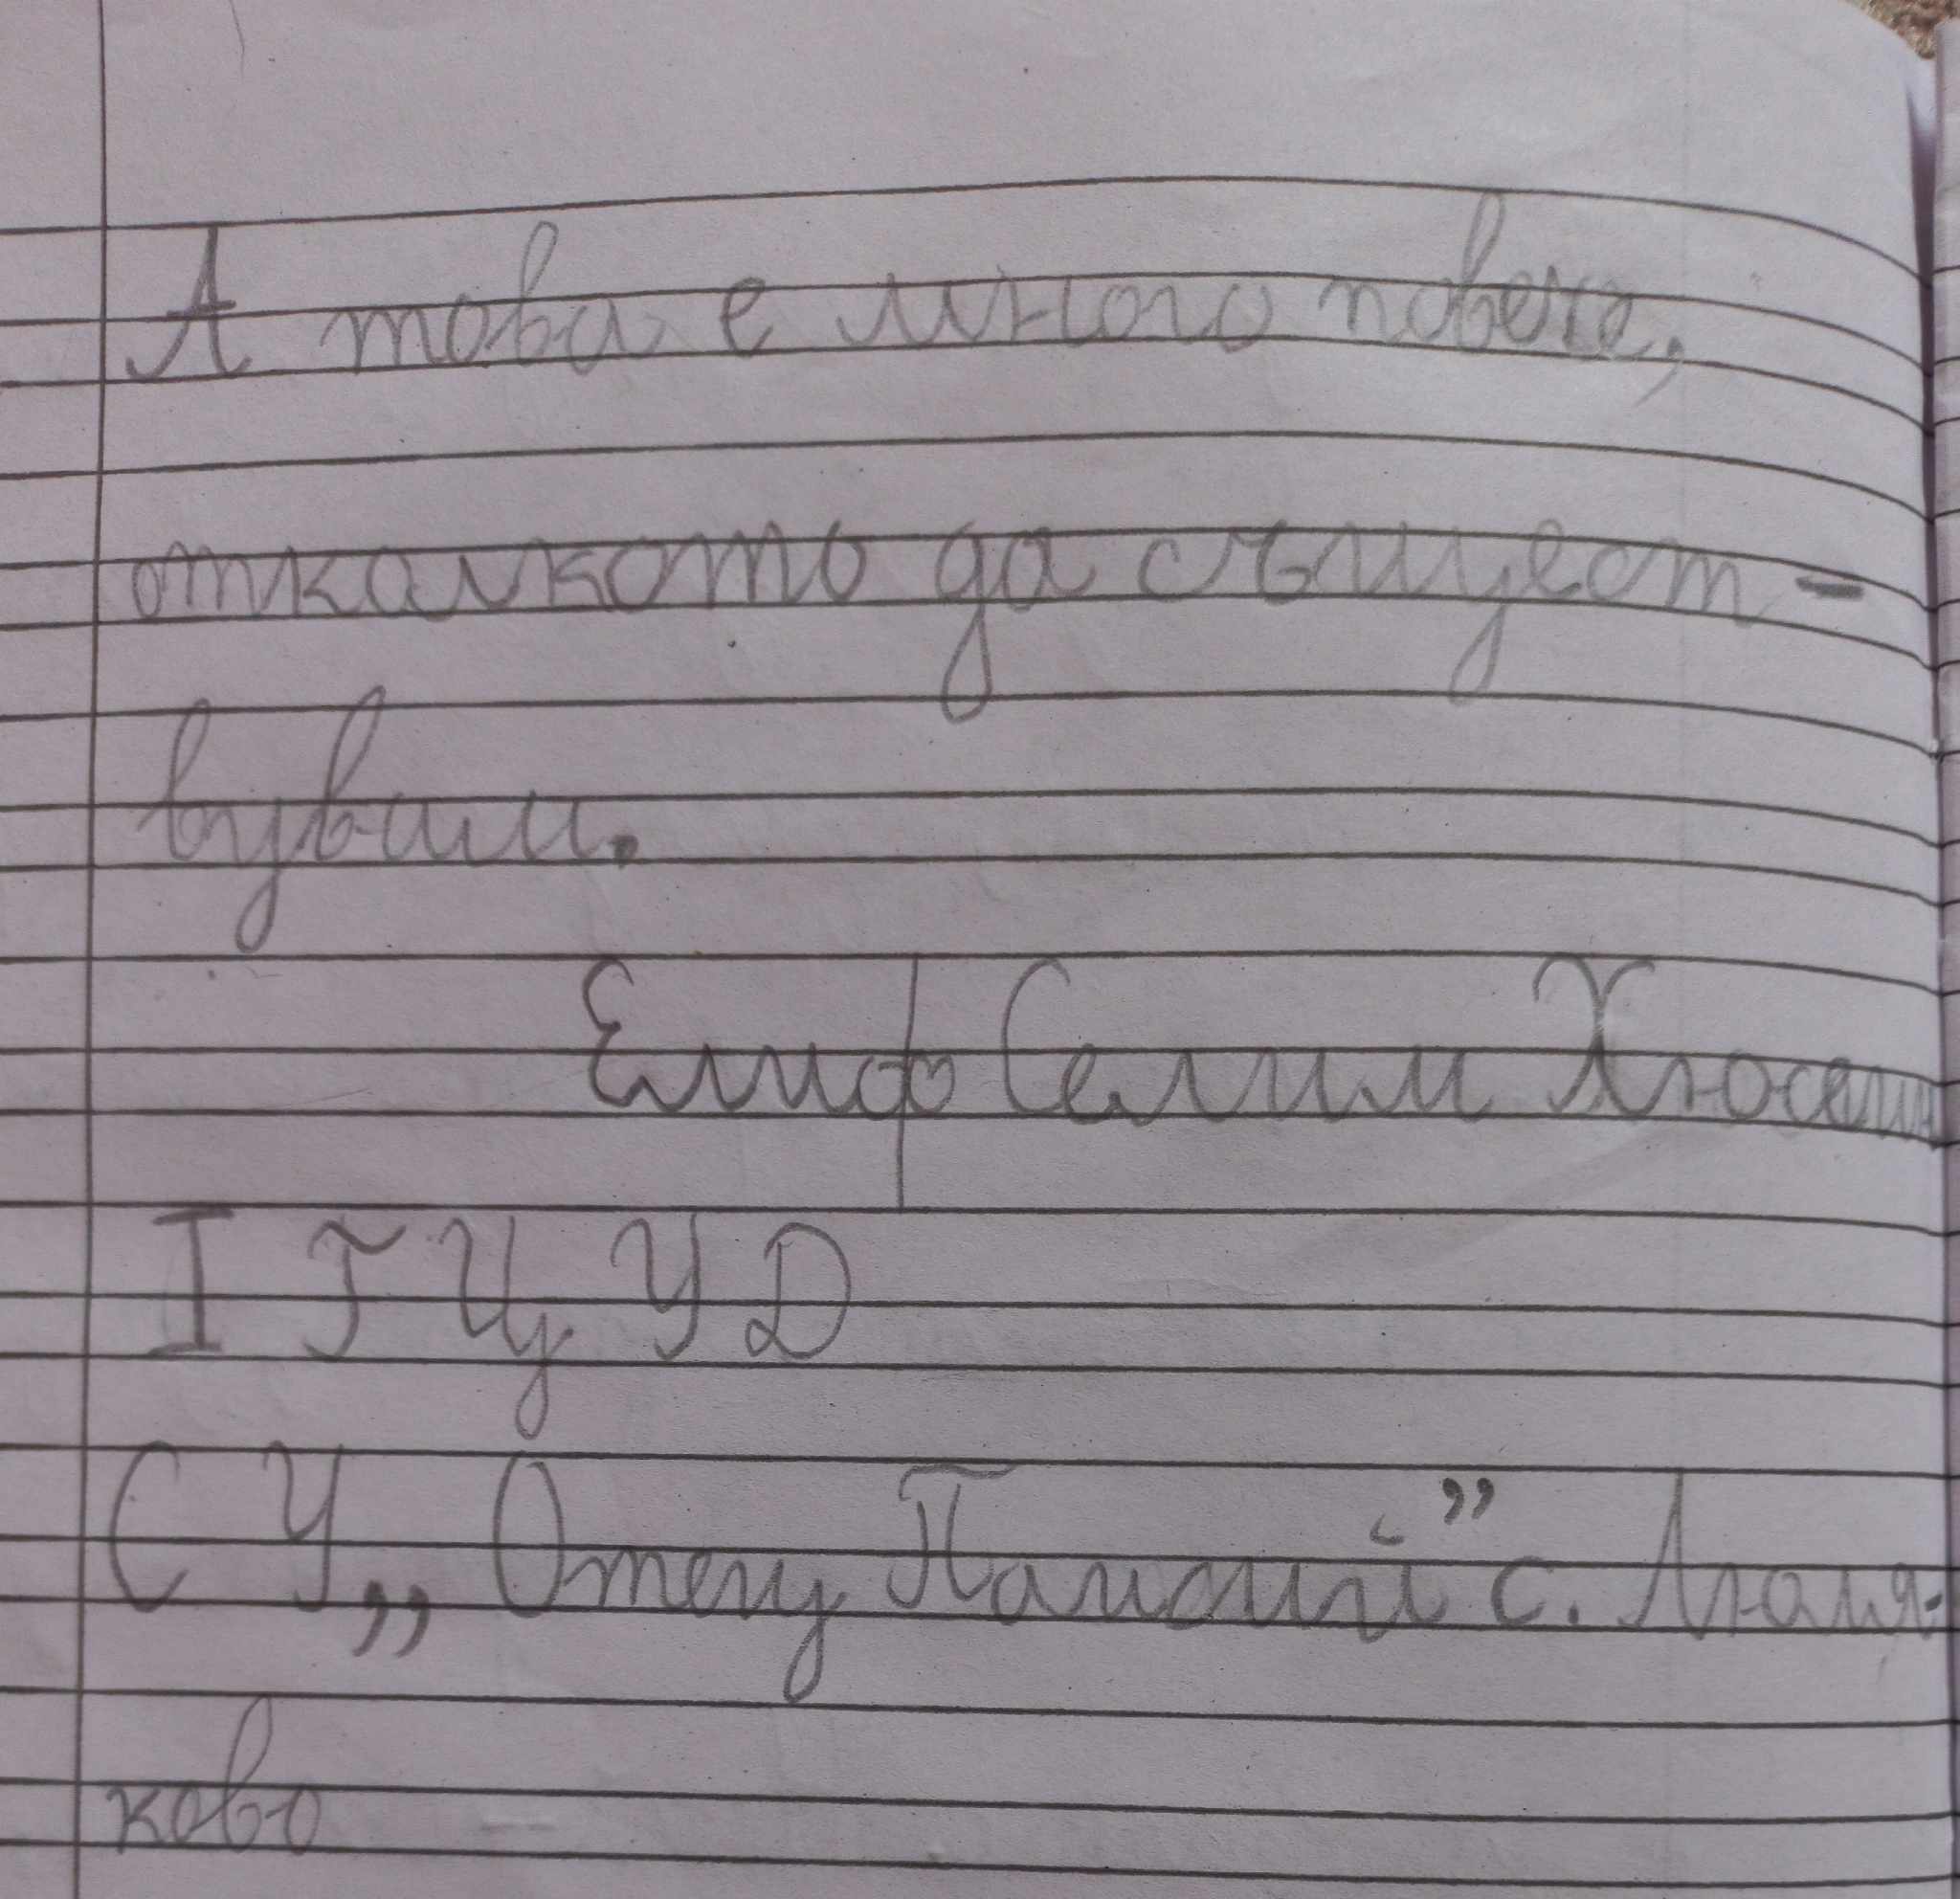 А това е много повече,
отколкото да същест-
вуваш.
Елиф Селим Хюсеин
I Г ЦУД
СУ „Отец Паисий" с. Люля-
ково